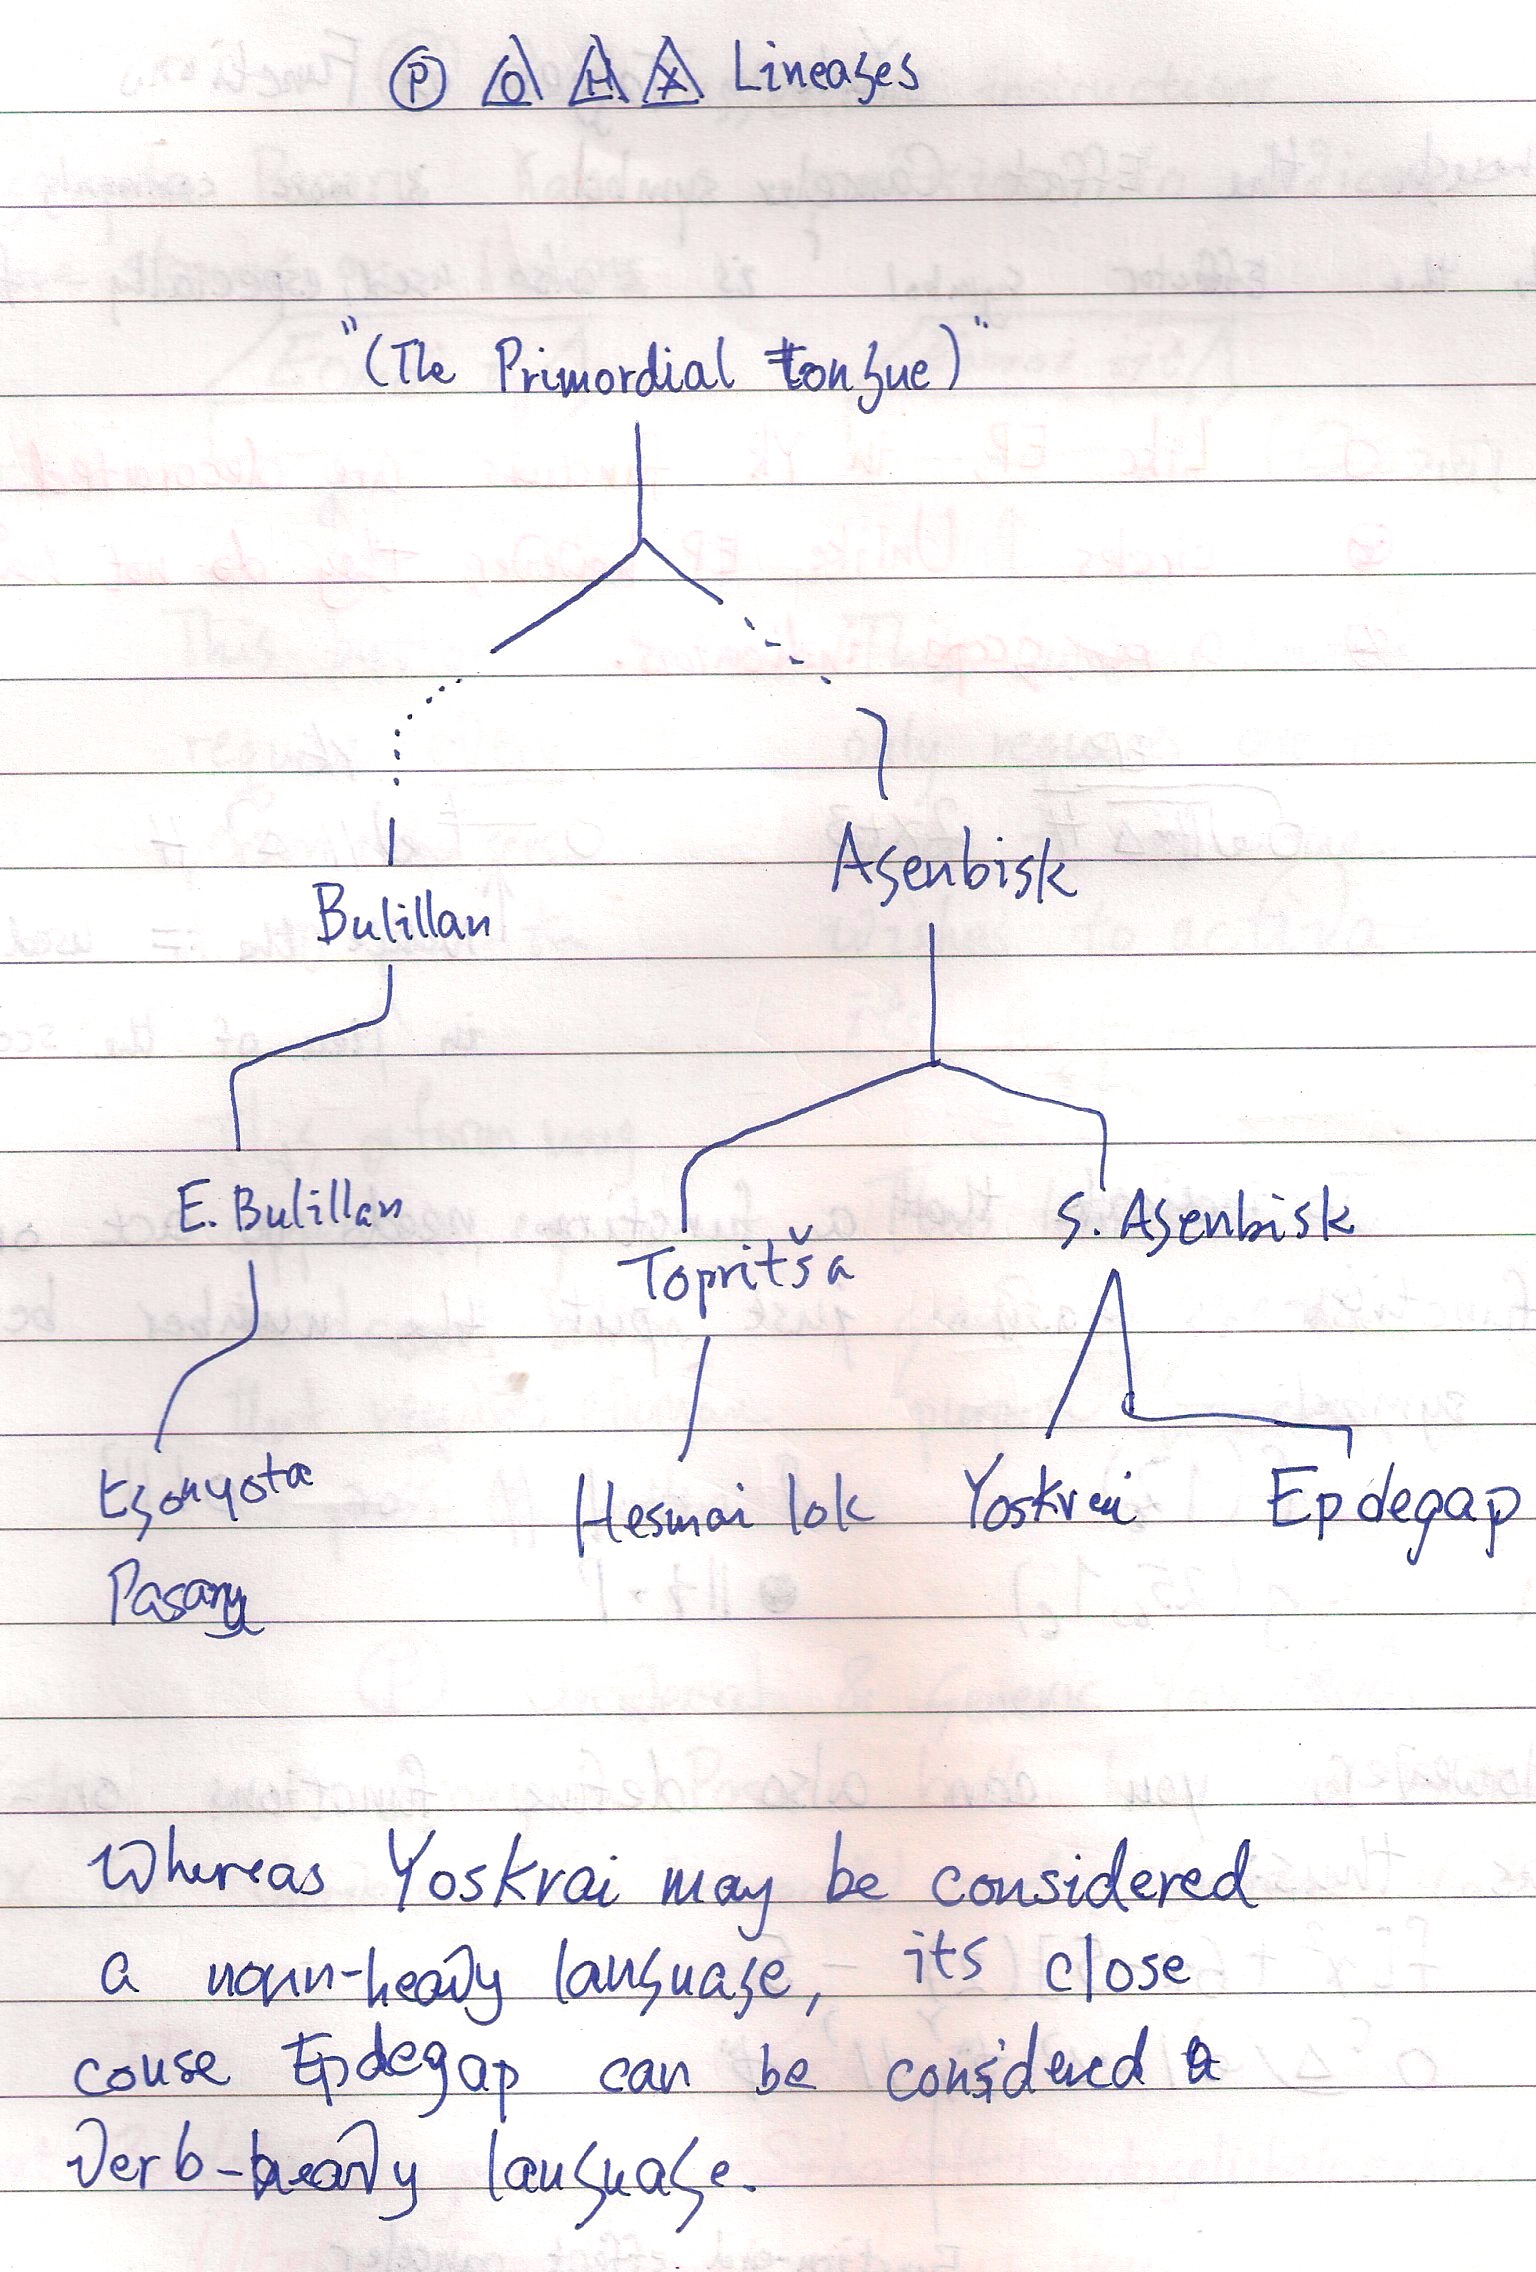 P O H X Lineages
"(The Primordial tongue)"
Bulillan
Agenbisk
E. Bulillan
Topritša
S. Agenbisk
Egonyota
Hesmai lok
Yoskrai
Epdegap
Whereas Yoskrai may be considered
a noun-heavy language, its close
couse Epdegap can be considered a
verb-heavy language.